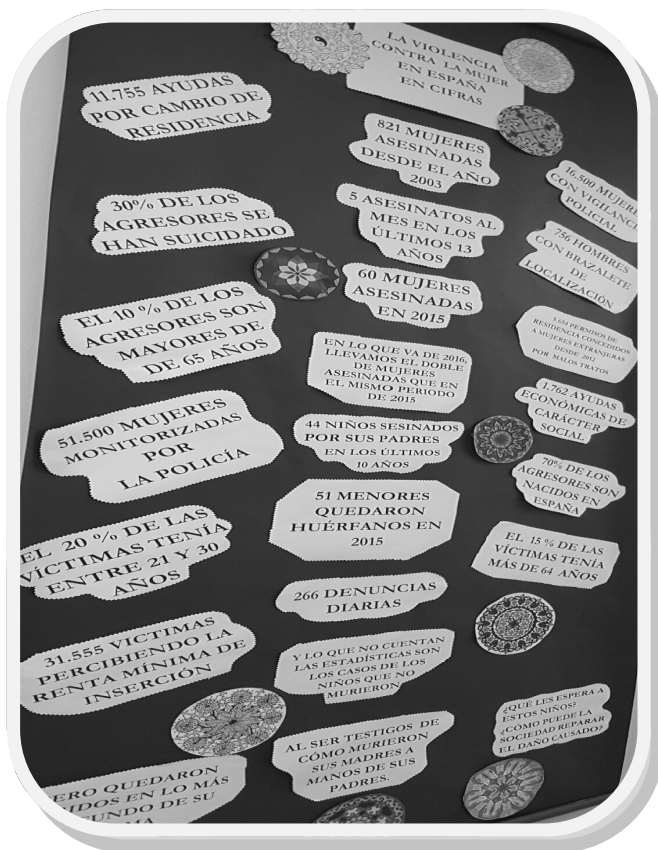 LA VIOLENCIA
CONTRA LA MUJER
EN ESPAÑA
EN CIFRAS
11.755 AYUDAS
POR CAMBIO DE
RESIDENCIA
30% DE LOS
AGRESORES SE
HAN SUICIDADO
EL 10 % DE LOS
AGRESORES SON
MAYORES DE
DE 65 AÑOS
51.500 MUJERES
MONITORIZADAS
POR
LA POLICÍA
EL 20 % DE LAS
VÍCTIMAS TENÍA
ENTRE 21 Y 30
AÑOS
31.555 VICTIMAS
PERCIBIENDO LA
RENTA MÍNIMA DE
INSERCIÓN
ERO QUEDARON
IDOS EN LO MÁS
FUNDO DE SU
MA
821 MUJERES
ASESINADAS
DESDE EL AÑO
2003
5 ASESINATOS AL
MES EN LOS
ÚLTIMOS 13
AÑOS
60 MUJERES
ASESINADAS
EN 2015
EN LO QUE VA DE 2016,
LLEVAMOS EL DOBLE
DE MUJERES
ASESINADAS QUE EN
EL MISMO PERIODO
DE 2015
44 NIÑOS SESINADOS
POR SUS PADRES
EN LOS ÚLTIMOS
10 AÑOS
51 MENORES
QUEDARON
HUÉRFANOS EN
2015
266 DENUNCIAS
DIARIAS
Y LO QUE NO CUENTAN
LAS ESTADÍSTICAS SON
LOS CASOS DE LOS
NIÑOS QUE NO
MURIERON
AL SER TESTIGOS DE
CÓMO MURIERON
SUS MADRES A
MANOS DE SUS
PADRES.
16.500 MUJERE
CON VIGILANCI
POLICIAL
756 HOMBRES
CON BRAZALETE
DE
LOCALIZACIÓN
PERMISOS DE
RESIDENCIA CONCEDIDOS
A MUJERES EXTRANJERAS
DESDE 2012
POR MALOS TRATOS
1.762 AYUDAS
ECONÓMICAS DE
CARÁCTER
SOCIAL
70% DE LOS
AGRESORES SON
NACIDOS EN
ESPAÑA
EL 15 % DE LAS
VÍCTIMAS TENÍA
MÁS DE 64 AÑOS
¿QUÉ LES ESPERA A
ESTOS NIÑOS?
¿CÓMO PUEDE LA
SOCIEDAD REPARAR
EL DAÑO CAUSADO?